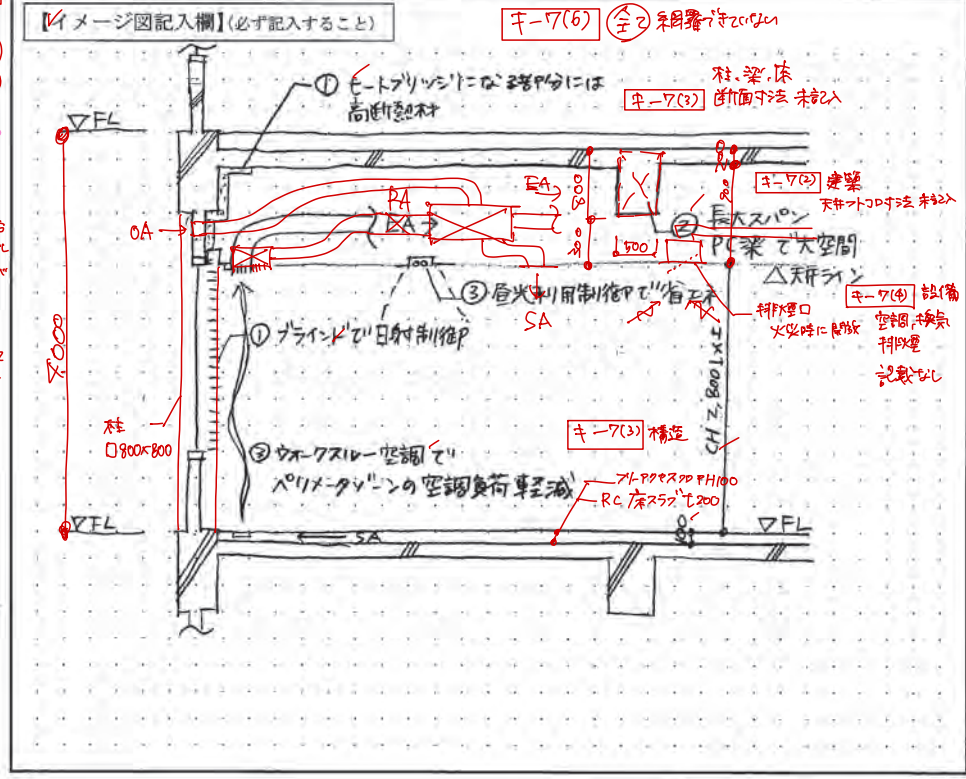 【イメージ図記入欄】(必ず記入すること)
キ-7(5) 全て 網羅できていない
① ヒートブリッジになる部分には
高断熱材
柱、梁、床
キ-7(3) 断面寸法 未記入
▽FL
キ-7(2) 建築
天井フトコロ寸法 未記入
RA
EA
EA
OA
800
② 長大スパン
PC梁で大空間
500
△天井ライン
③ 昼光利用制御で省エネ
SA
キ-7(4) 設備
空調、換気
排煙
記載なし
排煙口
火災時に開放
① ブラインドで日射制御
4000
CH2800
柱
□800×800
キ-7(3) 構造
③ ウォークスルー空調で
ペリメータゾーンの空調負荷軽減
フリーアクセスフロアH100
RC床スラブt200
▽FL
SA
▽FL